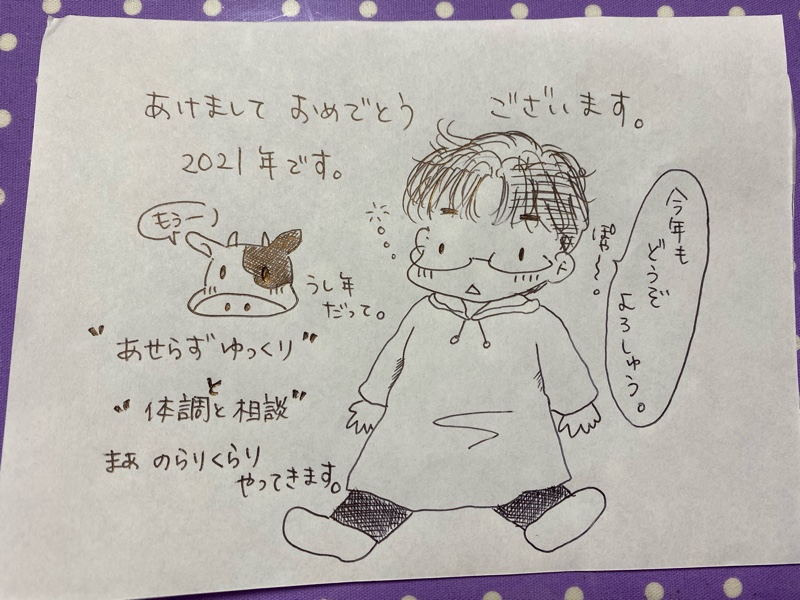 あけまして おめでとう ございます。
2021年です。
もぅー
うし年
だって。
"あせらず ゆっくり"
と
"体調と相談"
まぁ のらりくらり
やってきます。
ぽや〜。
今年も
どうぞ
よろしゅう。